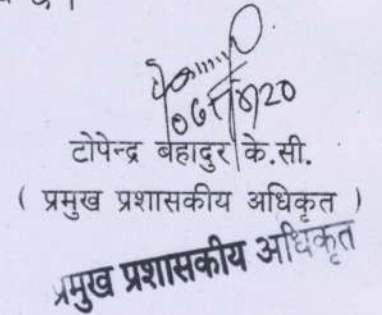 टोपेन्द्र बहादुर के.सी.
( प्रमुख प्रशासकीय अधिकृत )
प्रमुख प्रशासकीय अधिकृत